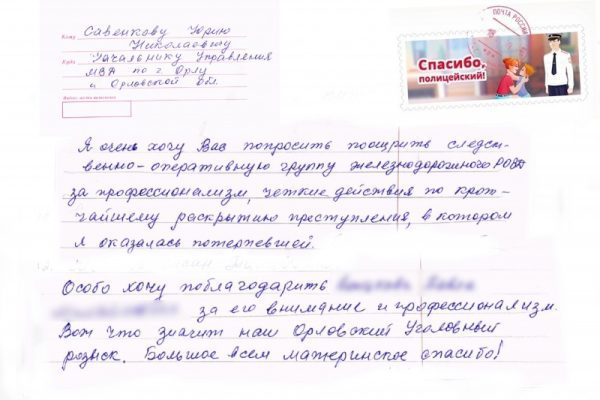 Кому Савенкову Юрию
Николаевичу
Куда Начальнику Управления
МВД по г. Орлу
и Орловской обл.
ПОЧТА РОССИИ
Спасибо,
полицейский!
Я очень хочу Вас попросить поощрить следст-
венно-оперативную группу железнодорожного РОВД
за профессионализм, чёткие действия по крот-
чайшему раскрытию преступления, в котором
я оказалась потерпевшей.
Особо хочу поблагодарить
за его внимание и профессионализм.
Вот что значит наш Орловский Уголовный
розыск. Большое всем материнское спасибо!